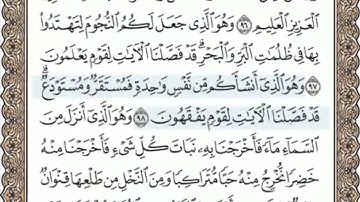 ٱلْعَزِيزِ ٱلْعَلِيمِ ٩٦ وَهُوَ ٱلَّذِى جَعَلَ لَكُمُ ٱلنُّجُومَ لِتَهْتَدُوا۟
بِهَا فِى ظُلُمَٰتِ ٱلْبَرِّ وَٱلْبَحْرِ ۗ قَدْ فَصَّلْنَا ٱلْءَايَٰتِ لِقَوْمٍ يَعْلَمُونَ
٩٧ وَهُوَ ٱلَّذِىٓ أَنشَأَكُم مِّن نَّفْسٍ وَٰحِدَةٍ فَمُسْتَقَرٌّ وَمُسْتَوْدَعٌ ۗ
قَدْ فَصَّلْنَا ٱلْءَايَٰتِ لِقَوْمٍ يَفْقَهُونَ ٩٨ وَهُوَ ٱلَّذِىٓ أَنزَلَ مِنَ
ٱلسَّمَآءِ مَآءً فَأَخْرَجْنَا بِهِۦ نَبَاتَ كُلِّ شَىْءٍ فَأَخْرَجْنَا مِنْهُ
خَضِرًا نُّخْرِجُ مِنْهُ حَبًّا مُّتَرَاكِبًا وَمِنَ ٱلنَّخْلِ مِن طَلْعِهَا قِنْوَانٌ